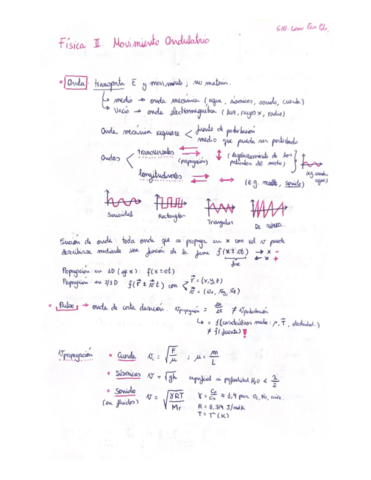 Física II Movimiento Ondulatorio
• Onda: transporta E y movimiento; no materia.
↳ medio → onda mecánica (agua, sísmicas, sonido, cuerda)
↳ vacío → onda electromagnética (luz, rayos x, radio)
Onda mecánica requiere < fuente de perturbación
medio que pueda ser perturbado
Ondas < transversales (propagación) (desplazamiento de las partículas del medio) (e.g. cuerda, agua)
longitudinales (e.g. muelle, sonido)
Sinusoidal Rectangular Triangular
Función de onda: toda onda que se propaga en x con vel v puede
describirse mediante una función de la forma f(x ± vt) → x -
fase ← x +
Propagación en 1D (eje x): f(x ± vt)
Propagación en 2/3D f(r ± vt) con r = (x, y, z)
v = (vx, vy, vz)
• Pulso → onda de corta duración. Vpropagación = Δx/Δt ≠ Vperturbación
↳ = f(características medio: ρ, T, elasticidad)
≠ f(fuente)!
Vpropagación • Cuerda v = √(F/μ) ; μ = m/L
• Sísmicas v = √(gh) superficial si profundidad H₂O < λ/2
• Sonido (en fluidos) v = √(γRT/Mr) γ = Cp/Cv ≈ 1,4 para O₂, N₂, aire.
R = 8,314 J/molK
T = Tª (K)